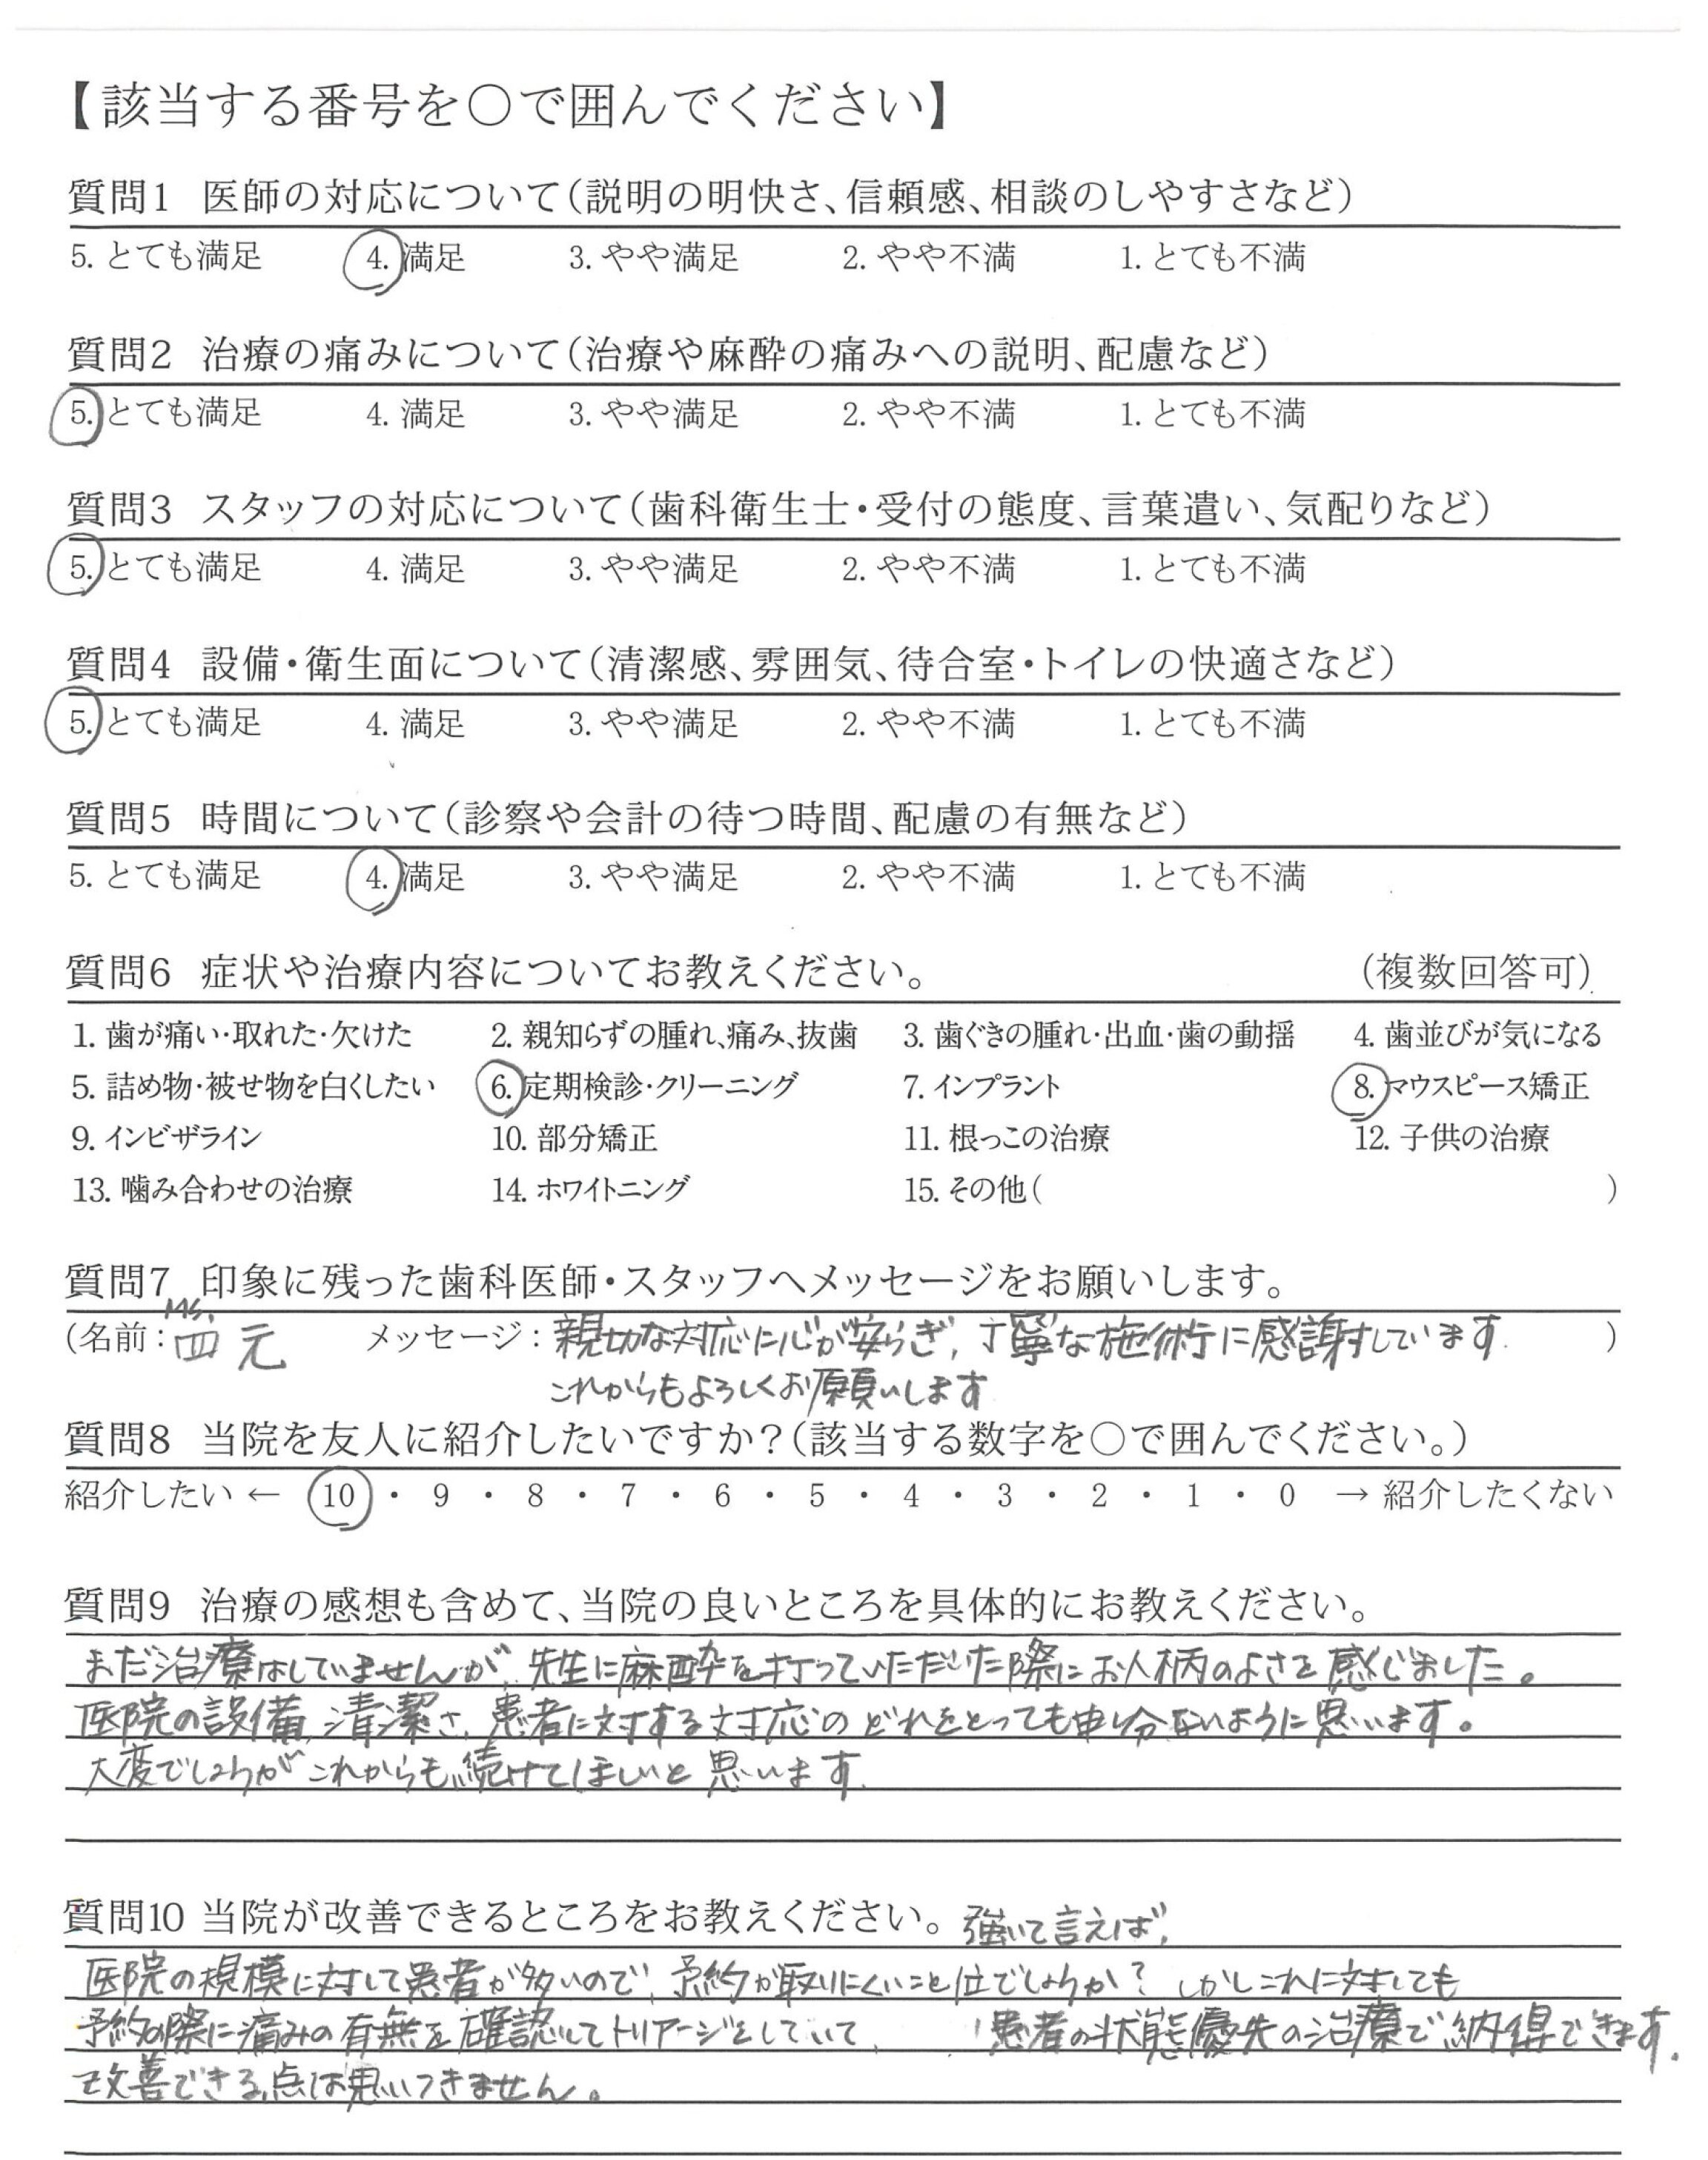 【該当する番号を○で囲んでください】
質問1 医師の対応について(説明の明快さ、信頼感、相談のしやすさなど)
5. とても満足 4. 満足 3. やや満足 2. やや不満 1. とても不満
質問2 治療の痛みについて(治療や麻酔の痛みへの説明、配慮など)
5. とても満足 4. 満足 3. やや満足 2. やや不満 1. とても不満
質問3 スタッフの対応について(歯科衛生士・受付の態度、言葉遣い、気配りなど)
5. とても満足 4. 満足 3. やや満足 2. やや不満 1. とても不満
質問4 設備・衛生面について(清潔感、雰囲気、待合室・トイレの快適さなど)
5. とても満足 4. 満足 3. やや満足 2. やや不満 1. とても不満
質問5 時間について(診察や会計の待つ時間、配慮の有無など)
5. とても満足 4. 満足 3. やや満足 2. やや不満 1. とても不満
質問6 症状や治療内容についてお教えください。 (複数回答可)
1. 歯が痛い・取れた・欠けた 2. 親知らずの腫れ、痛み、抜歯 3. 歯ぐきの腫れ・出血・歯の動揺 4. 歯並びが気になる
5. 詰め物・被せ物を白くしたい 6. 定期検診・クリーニング 7. インプラント 8. マウスピース矯正
9. インビザライン 10. 部分矯正 11. 根っこの治療 12. 子供の治療
13. 噛み合わせの治療 14. ホワイトニング 15. その他( )
質問7 印象に残った歯科医師・スタッフへメッセージをお願いします。
Ms.
(名前: 四元 メッセージ: 親切な対応に心が安らぎ, 丁寧な施術に感謝しています. )
これからもよろしくお願いします
質問8 当院を友人に紹介したいですか?(該当する数字を○で囲んでください。)
紹介したい ← 10 ・ 9 ・ 8 ・ 7 ・ 6 ・ 5 ・ 4 ・ 3 ・ 2 ・ 1 ・ 0 → 紹介したくない
質問9 治療の感想も含めて、当院の良いところを具体的にお教えください。
まだ治療はしていませんが, 先生に麻酔を打っていただいた際にお人柄のよさを感じました。
医院の設備, 清潔さ, 患者に対する対応のどれをとっても申し分ないように思います。
大変でしょうがこれからも続けてほしいと思います.
質問10 当院が改善できるところをお教えください。 強いて言えば,
医院の規模に対して患者が多いので, 予約が取りにくいこと位でしょうか? しかしこれに対しても
予約の際に痛みの有無を確認してトリアージをしていて, 患者の状態優先の治療で納得できます.
改善できる点は思いつきません。